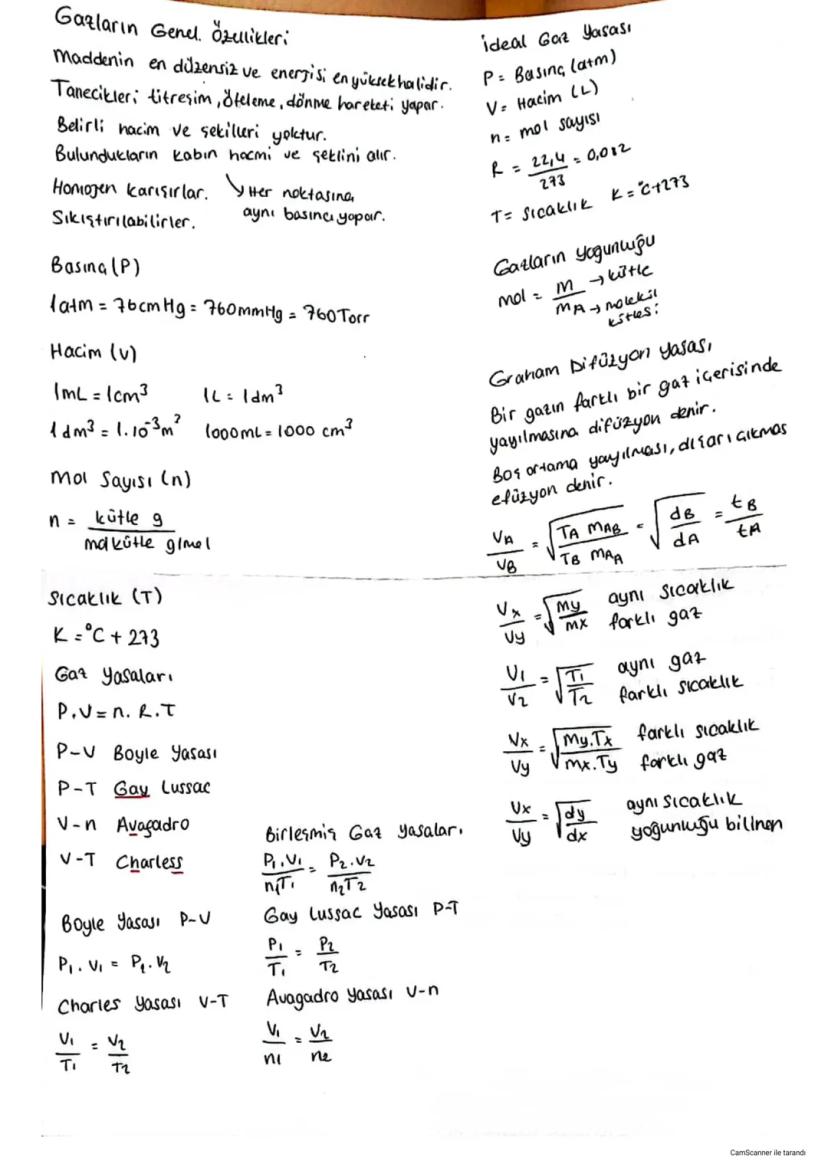 Gazların Genel Özellikleri
Maddenin en düzensiz ve enerjisi en yüksek halidir.
Tanecikleri titreşim, öteleme, dönme hareketi yapar.
Belirli hacim ve şekilleri yoktur.
Bulundukların kabın hacmi ve şeklini alır.
Homojen karışırlar. ↘ Her noktasına
aynı basıncı yapar.
Sıkıştırılabilirler.
Basınç (P)
1 atm = 76 cm Hg = 760 mmHg = 760 Torr
Hacim (V)
1mL = 1cm³ 1L = 1dm³
1 dm³ = 1.10⁻³m³ 1000mL = 1000 cm³
Mol Sayısı (n)
n = kütle g / mol kütle g/mol
Sıcaklık (T)
K = °C + 273
Gaz Yasaları
P.V = n.R.T
P-V Boyle Yasası
P-T Gay Lussac
V-n Avagadro
V-T Charless
Boyle Yasası P-V
P₁.V₁ = P₂.V₂
Charles Yasası V-T
V₁/T₁ = V₂/T₂
Birleşmiş Gaz Yasaları
P₁.V₁/n₁T₁ = P₂.V₂/n₂T₂
Gay Lussac Yasası P-T
P₁/T₁ = P₂/T₂
Avagadro Yasası V-n
V₁/n₁ = V₂/n₂
İdeal Gaz Yasası
P = Basınç (atm)
V = Hacim (L)
n = mol sayısı
R = 22,4/273 = 0,082
T = Sıcaklık K = °C+273
Gazların Yoğunluğu
mol = m/MA → kütle
→ molekül
kütlesi
Graham Difüzyon Yasası
Bir gazın farklı bir gaz içerisinde
yayılmasına difüzyon denir.
Boş ortama yayılması, dışarı çıkması
efüzyon denir.
VA/VB = √(TA MAB / TB MAA) = √(dB/dA) = tB/tA
Vx/Vy = √(My/Mx) aynı sıcaklık
farklı gaz
V₁/V₂ = √(T₁/T₂) aynı gaz
farklı sıcaklık
Vx/Vy = √(My.Tx/Mx.Ty) farklı sıcaklık
farklı gaz
Vx/Vy = √(dy/dx) aynı sıcaklık
yoğunluğu bilinen
CamScanner ile tarandı